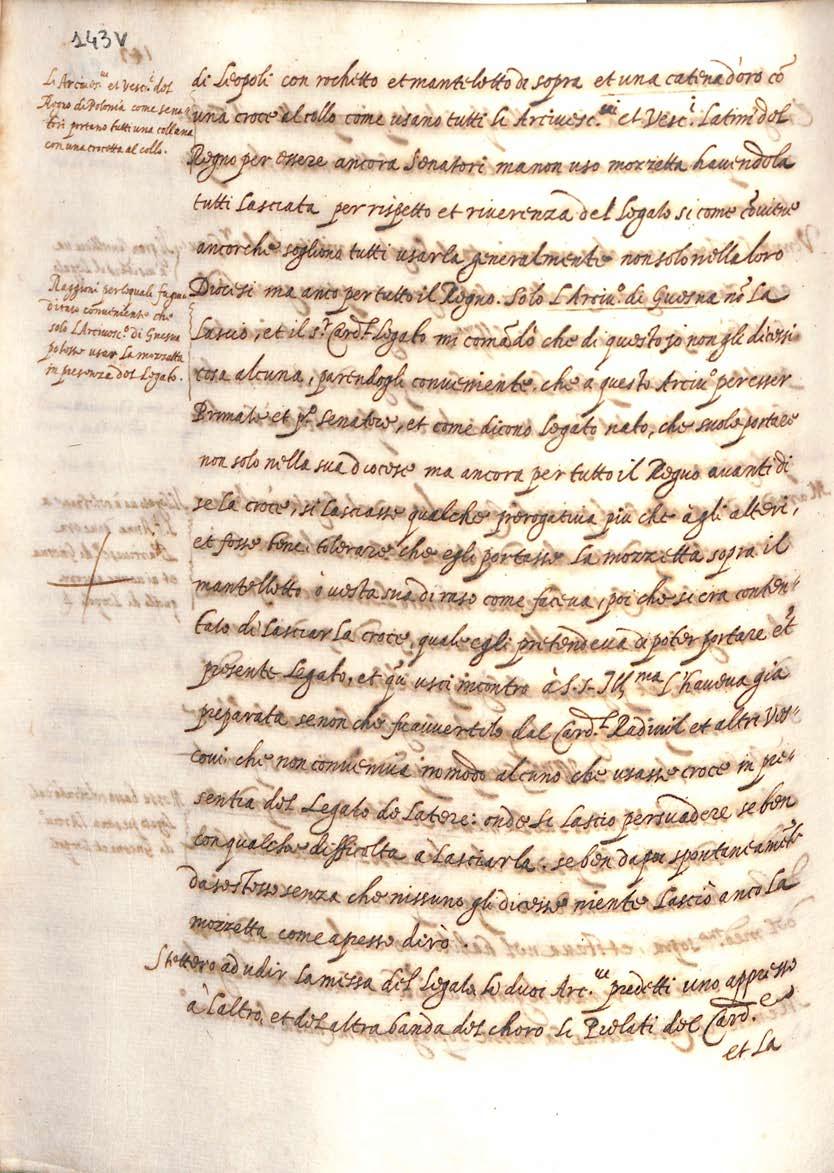 143v
Li Arcives.ui et Vesc.i del
Regno di Polonia come sena
tori portano tutti una collana
con una crocetta al collo.
di Leopoli con rochetto et manteletto di sopra et una catena d'oro cō
una croce al collo come usano tutti li Arcivesc.ui et Vesc.i Latini del
Regno per essere ancora Senatori ma non uso mozzetta havendola
tutti lasciata per rispetto et riverenza del Legato si come
ancorche sogliono tutti usarla generalmente non solo nella loro
Diocesi ma anco per tutto il Regno. Solo L'Arciv.o di Guesna nō la
Raggioni per lequale fu giudi
conveniente che
solo L'Arcivesc.o di Gnesna
potesse usar la mozzetta
in presenza del Legato.
Lasciò, et il s.r Card.l Legato mi comādò che di questo io non gli dicessi
cosa alcuna, parendogli conveniente che a questo Arciv.o per esser
Primate et p.o Senatore, et come dicono Legato nato, che suole portare
non solo nella sua diocese ma ancora per tutto il Regno avanti di
se la croce, si lasciasse qualche prerogativa più che à gli alteri,
et fosse bene tolerare che egli portasse la mozzetta sopra il
mantelletto ò vesta sua di raso come faceva, poi che si era conten-
tato di lasciar la croce, quale egli pretendeva di poter portare et
presente Legato, et qn̄ uscì incontro à S.S. Ill.ma l'haveva già
preparata se non che fu avvertito dal Card.l Radivil et altri Ves-
covi che non conveniva in modo alcuno che usasse croce in pre-
sentia del Legato de Latere: onde si lascio persuadere se ben
con qualche difficoltà à lasciarla. se ben da poi spontaneamēte
da se stesso senza che nissuno gli dicesse niente lasciò anco la
mozzetta come apresso dirò.
Stettero ad udir la messa del Legato li duoi Arc.ui predetti uno appresso
à l'altro, et del altra banda del choro li Prelati del Card.e
et la